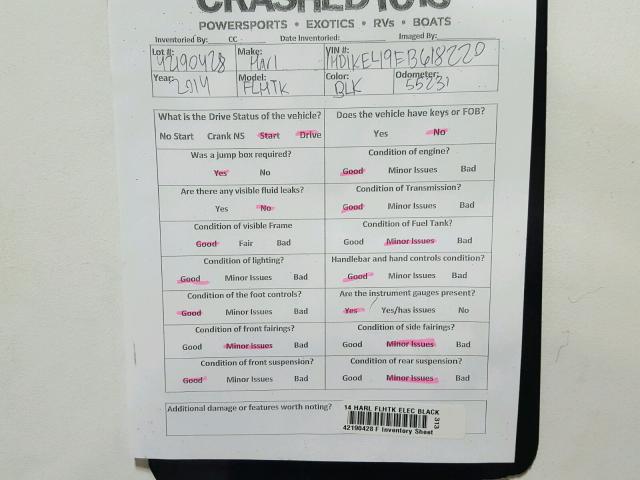 CRASHEDTOYS
POWERSPORTS • EXOTICS • RVs • BOATS
Inventoried By: CC Date Inventoried: Imaged By:
Lot #: 42190428 Make: Harl VIN #: 1HD1KEL19EB618220
Year: 2014 Model: FLHTK Color: BLK Odometer: 55231
What is the Drive Status of the vehicle? Does the vehicle have keys or FOB?
No Start Crank NS Start Drive Yes No
Was a jump box required? Condition of engine?
Yes No Good Minor Issues Bad
Are there any visible fluid leaks? Condition of Transmission?
Yes No Good Minor Issues Bad
Condition of visible Frame Condition of Fuel Tank?
Good Fair Bad Good Minor Issues Bad
Condition of lighting? Handlebar and hand controls condition?
Good Minor Issues Bad Good Minor Issues Bad
Condition of the foot controls? Are the instrument gauges present?
Good Minor Issues Bad Yes Yes/has issues No
Condition of front fairings? Condition of side fairings?
Good Minor Issues Bad Good Minor Issues Bad
Condition of front suspension? Condition of rear suspension?
Good Minor Issues Bad Good Minor Issues Bad
Additional damage or features worth noting?
14 HARL FLHTK ELEC BLACK
313
42190428 F Inventory Sheet